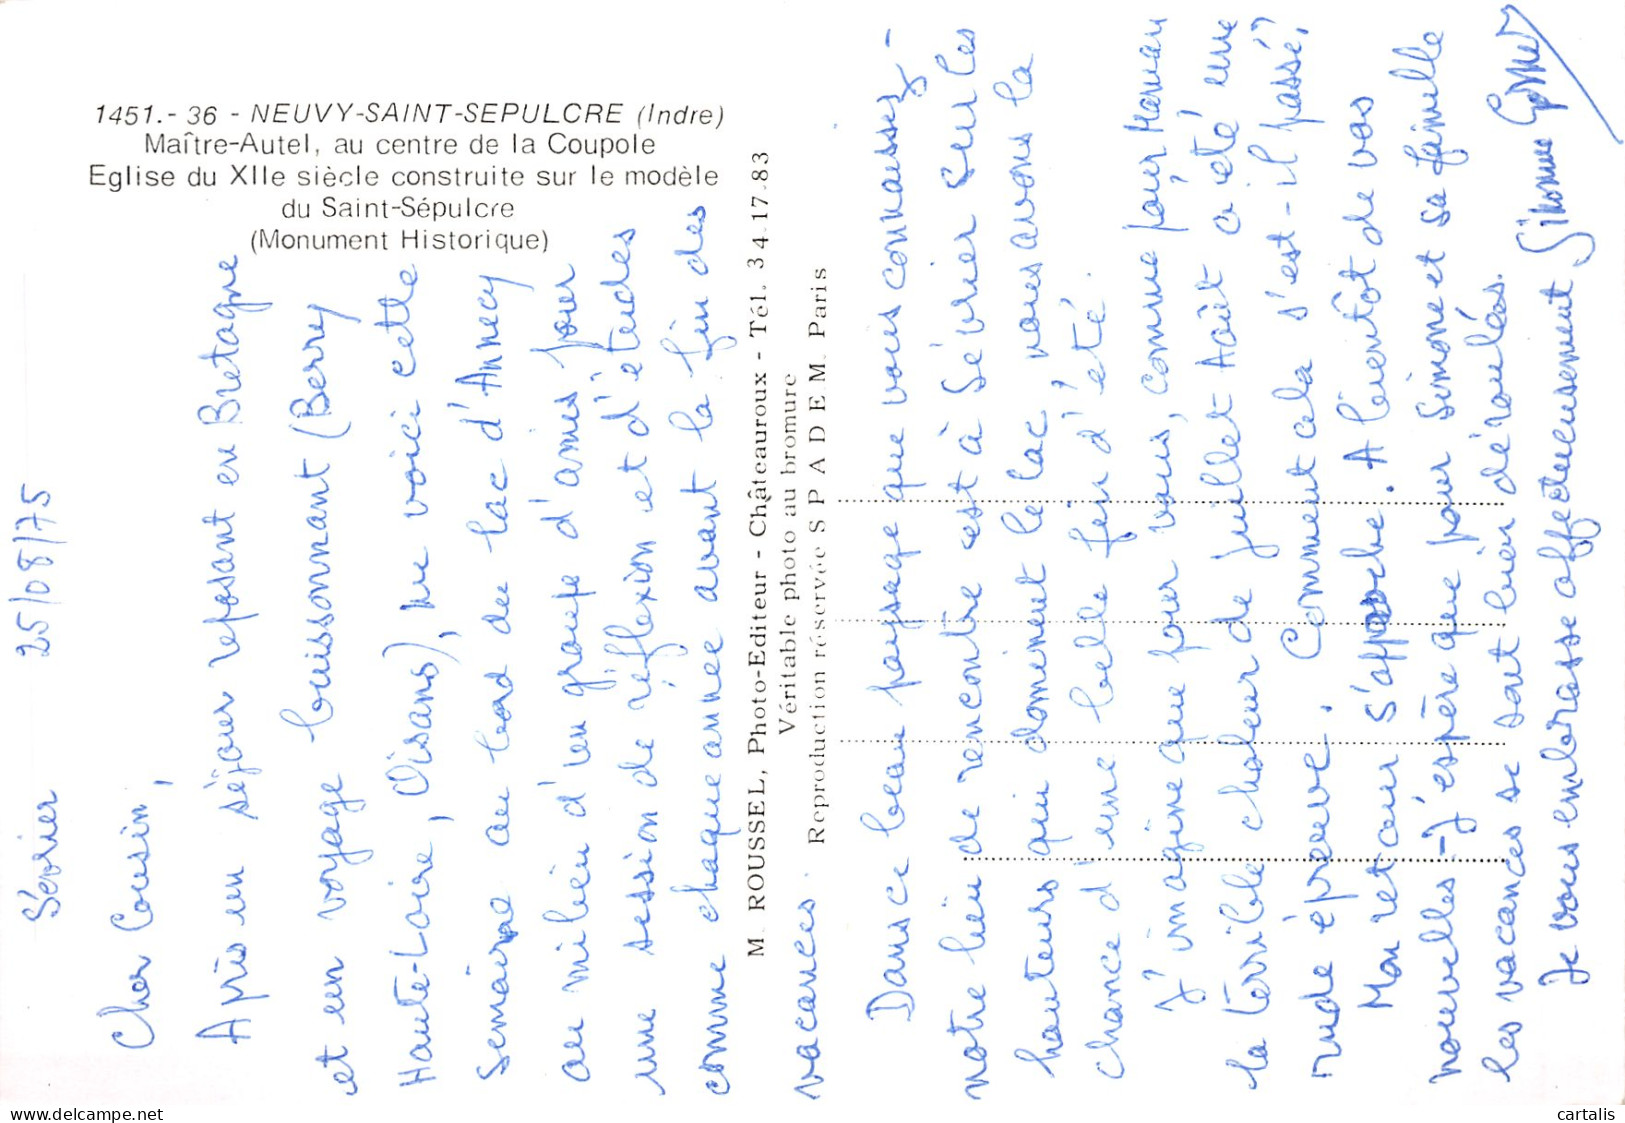 1451.- 36 - NEUVY-SAINT-SEPULCRE (Indre)
Maître-Autel, au centre de la Coupole
Eglise du XIIe siècle construite sur le modèle
du Saint-Sépulcre
(Monument Historique)
M. ROUSSEL, Photo-Editeur - Châteauroux - Tél. 34.17.83
Véritable photo au bromure
Reproduction réservée S P A D E M. Paris
Sévrier 25/08/75
Cher Cousin,
Après un séjour reposant en Bretagne
et un voyage buissonnant (Berry,
Haute-Loire, Oisans), me voici cette
semaine au bord du lac d'Annecy
au milieu d'un groupe d'amis pour
une session de réflexion et d'études
comme chaque année avant la fin des
vacances.
Dans ce beau paysage que vous connaissez -
notre lieu de rencontre est à Sévrier sur les
hauteurs qui dominent le lac nous avons la
chance d'une belle fin d'été.
J'imagine que pour vous, comme pour Maman
la terrible chaleur de juillet Août a été une
rude épreuve. Comment cela s'est-il passé ?
Mon retour s'approche. A bientôt de vos
nouvelles - J'espère que pour Simone et sa famille
les vacances se sont bien déroulées.
Je vous embrasse affectueusement Simone
delcampe.net
cartalis